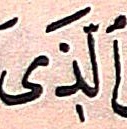 اَلَّذَى